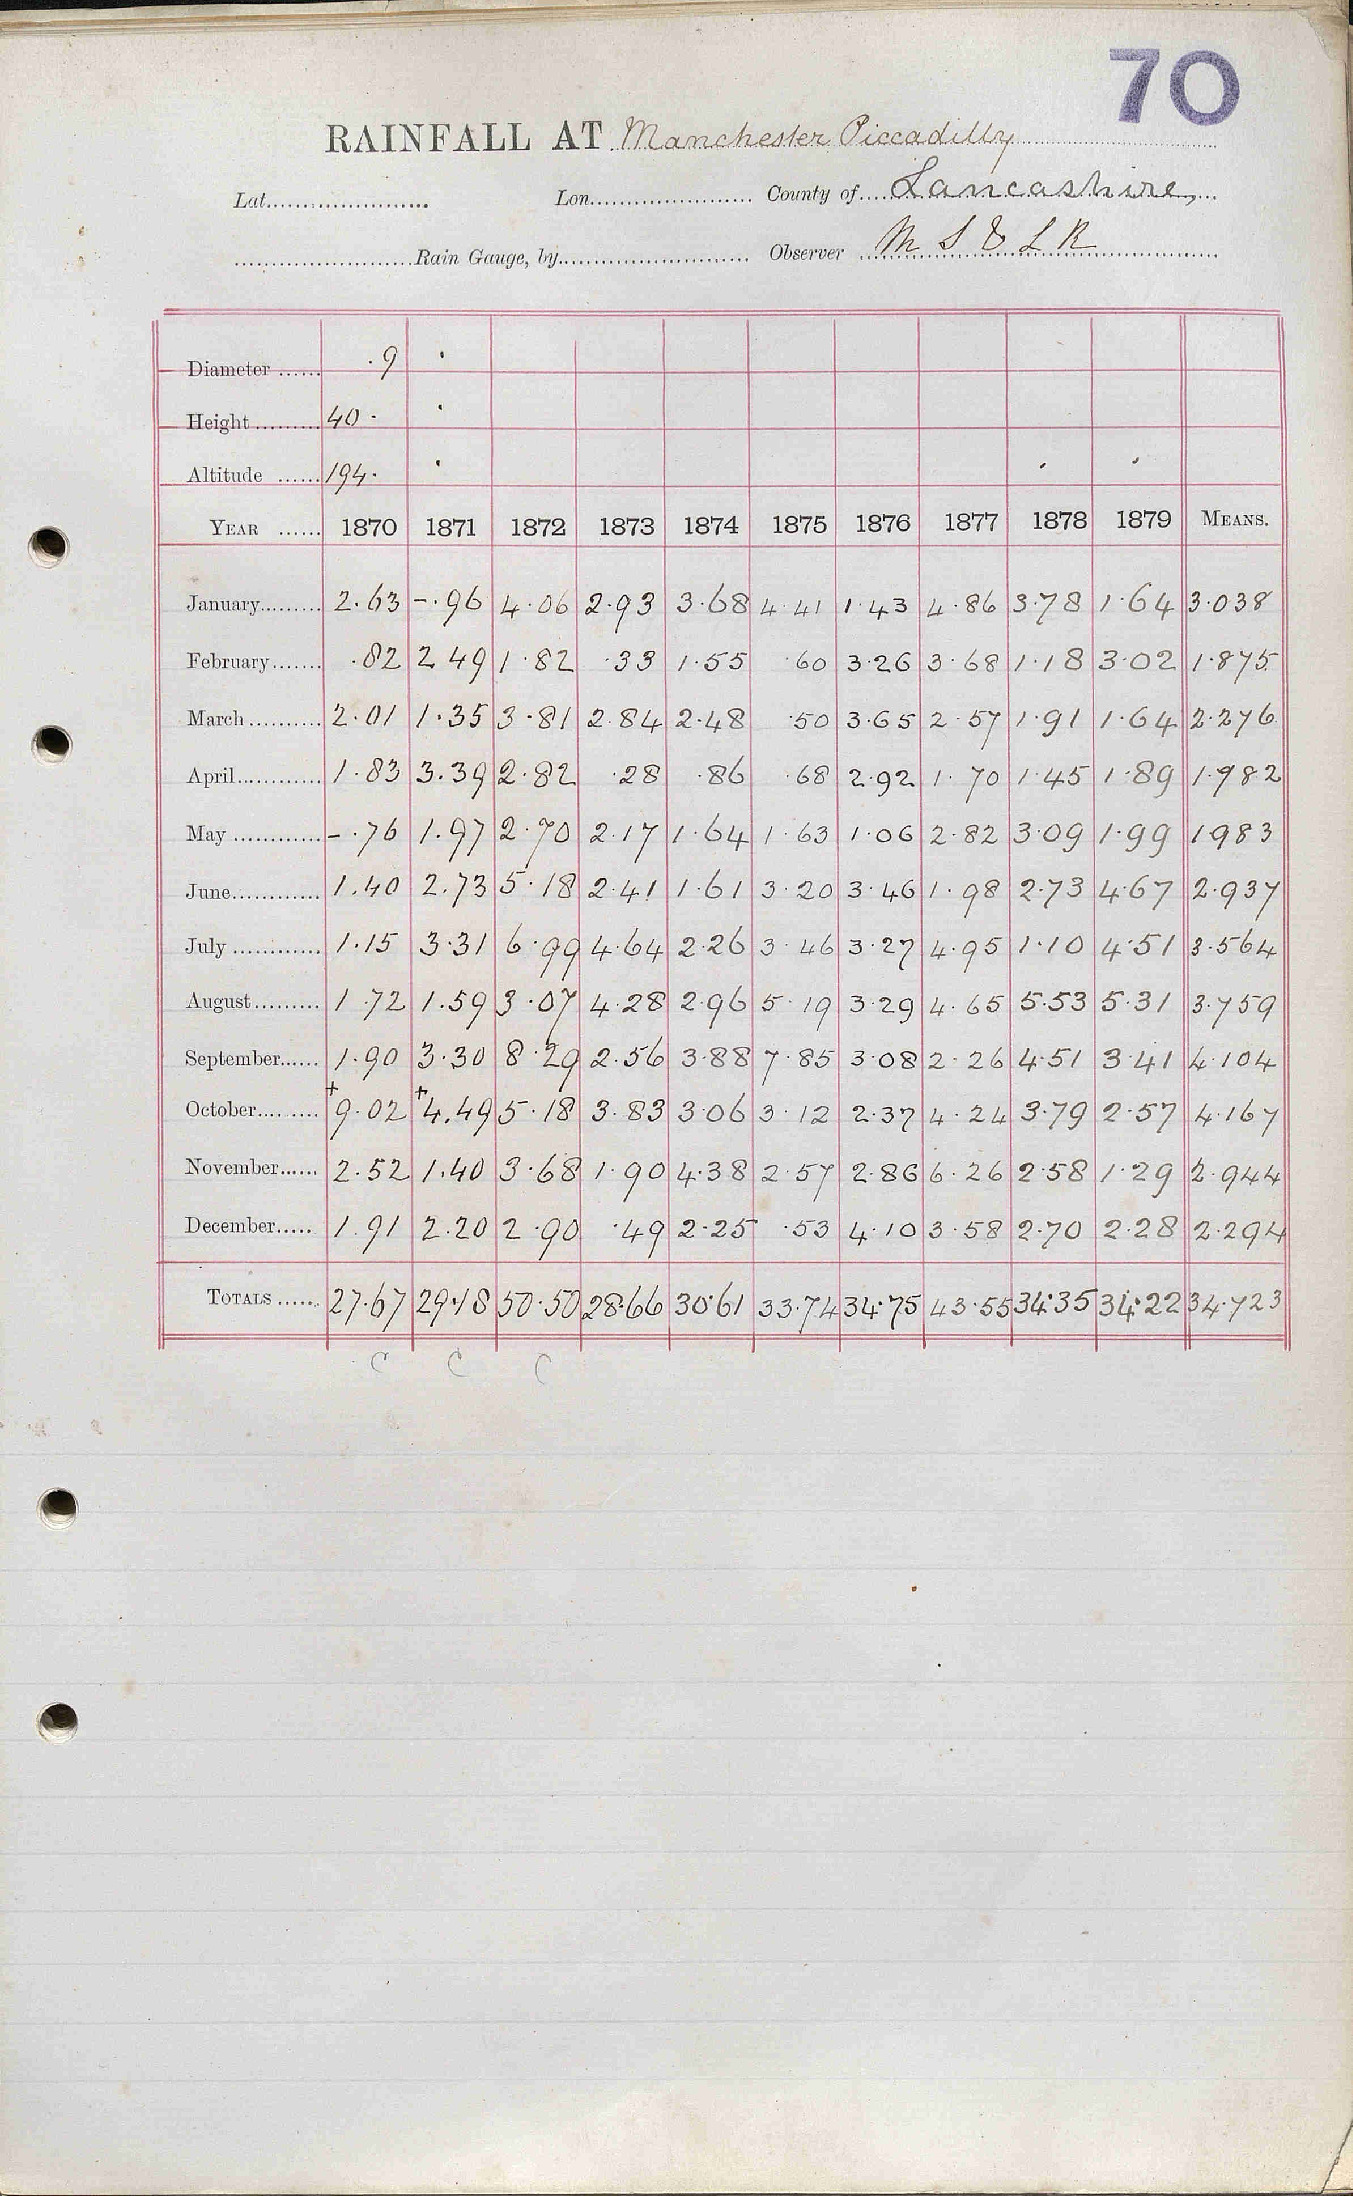 70
RAINFALL AT Manchester Piccadilly
Lat. Lon. County of Lancashire,
Rain Gauge, by Observer M S & L R
Diameter ...... ·9 ·
Height ......... 40· ·
Altitude ...... 194· · · ·
YEAR ...... 1870 1871 1872 1873 1874 1875 1876 1877 1878 1879 MEANS.
January......... 2.63 -.96 4.06 2.93 3.68 4.41 1.43 4.86 3.78 1.64 3.038
February....... .82 2 49 1.82 .33 1.55 .60 3.26 3.68 1.18 3.02 1.875
March.......... 2.01 1.35 3.81 2.84 2.48 .50 3.65 2.57 1.91 1.64 2.276
April............ 1.83 3.39 2.82 .28 .86 .68 2.92 1.70 1.45 1.89 1.982
May ............ -.76 1.97 2.70 2.17 1.64 1.63 1.06 2.82 3.09 1.99 1983
June............ 1.40 2.73 5.18 2.41 1.61 3.20 3.46 1.98 2.73 4.67 2.937
July ............ 1.15 3.31 6.99 4.64 2.26 3.46 3.27 4.95 1.10 4.51 3.564
August......... 1 72 1.59 3.07 4.28 2.96 5.19 3.29 4.65 5.53 5.31 3.759
September...... 1.90 3.30 8.29 2.56 3.88 7.85 3.08 2.26 4.51 3.41 4.104
October......... +9.02 +4.49 5.18 3.83 3.06 3.12 2.37 4.24 3.79 2.57 4.167
November...... 2.52 1.40 3.68 1.90 4.38 2.57 2.86 6.26 2.58 1.29 2.944
December..... 1.91 2.20 2.90 .49 2.25 .53 4.10 3.58 2.70 2.28 2.294
TOTALS ...... 27.67 29.18 50.50 28.66 30.61 33.74 34.75 43.55 34.35 34.22 34.723
C C C